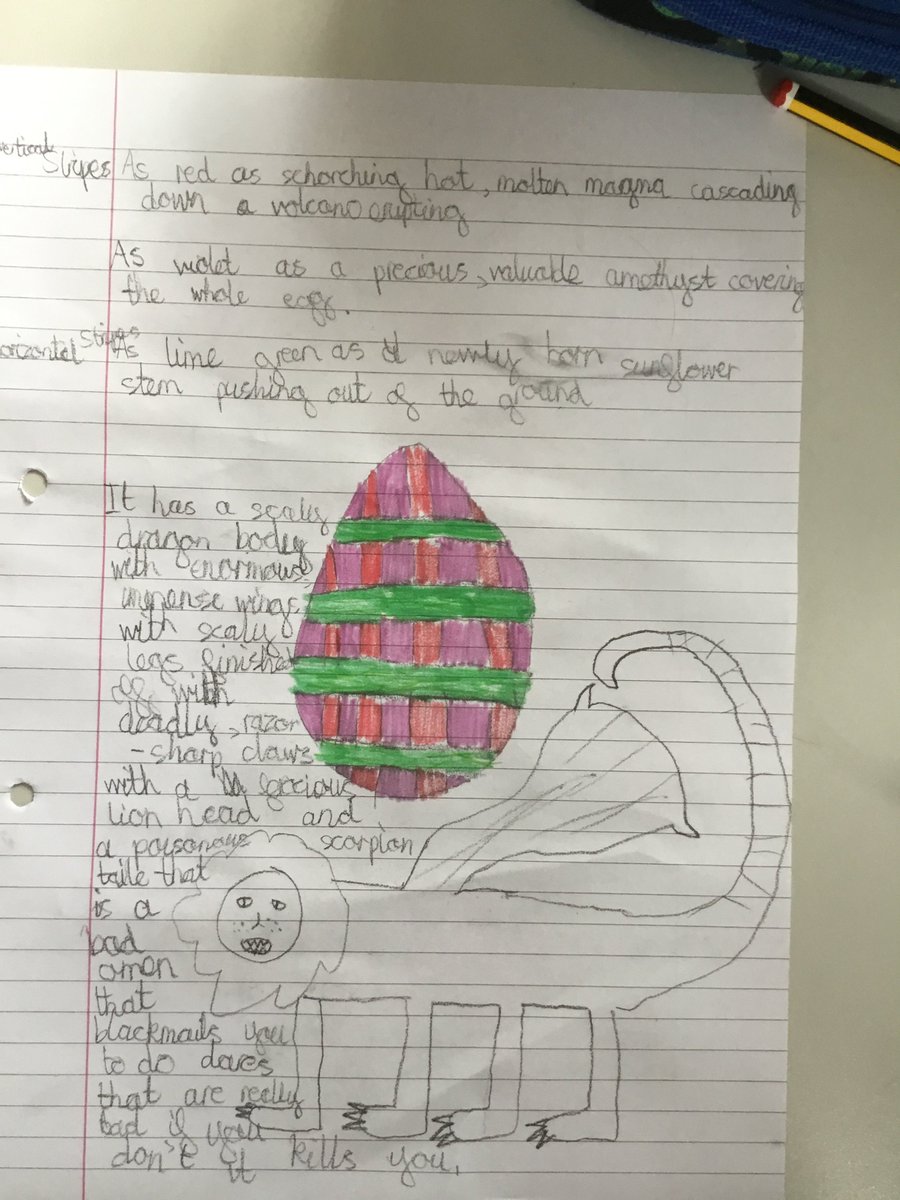 vertical
Stipes As red as schorching hot, molten magma cascading
down a volcano erupting
As violet as a precious, valuable amethyst covering
the whole egg.
horizontal stripes As lime green as a newly born sunflower
stem pushing out of the ground
It has a scaly
dragon body
with enormous
immense wings
with scaly
legs finished
off with
deadly, razor
-sharp claws
with a ferocious
lion head and
a poisonous scorpion
taile that
is a
bad
omen
that
blackmails you
to do dares
that are really
bad if you
don't it kills you.